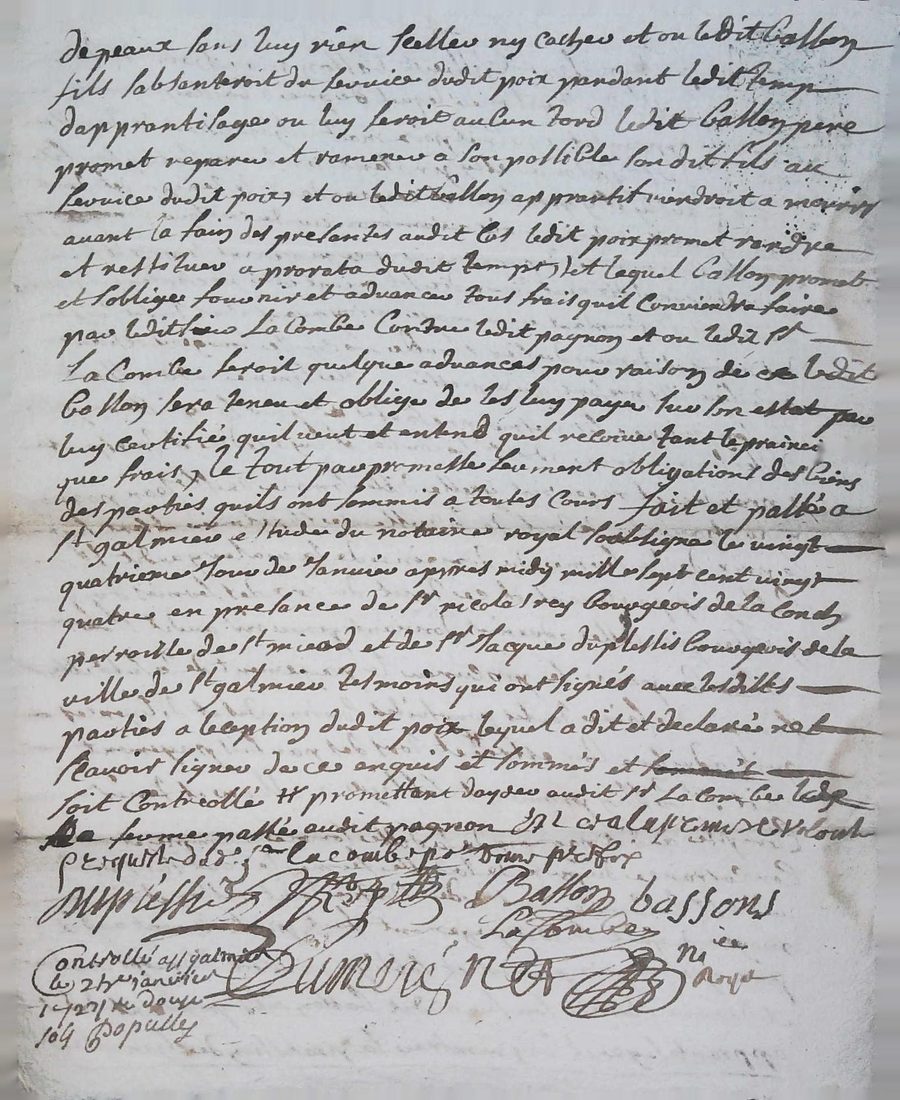 de peaux sans luy rien sceller ny cacher et ou ledit Basson
fils sabsanteroit du service dudit poix pandant ledit temp
dapprantisage ou luy feroit aucun tord ledit basson pere
promet reparer et ramener a son possible son dit fils au
service dudit poix, et ou ledit basson apprantit viendroit a mourir
avant la fain des presantes audit cas ledit poix promet randre
et restituer a prorata dudit temps, et lequel basson promet
et soblige fournir et advancer tous frais quil conviendra faire
par ledit sieur LaCombe Contre ledit pagnon et ou ledit Sr
La Combe feroit quelque advances pour raison de ce ledit
basson sera teneu et oblige de les luy payer sur son estat par
luy certifié quil veut et entend quil recoive tant le prainci
que frais, le tout par promesse serment obligations des biens
des parties quils ont sommis a toutes Cours fait et passé a
St galmier estude du notaire royal soubsigne le vingt
quatrieme Jour de Janvier appres midy mille sept cent vingt
quatre en presance de Sr nicolas rey bourgeois de la
perroisse de St mieard et de Sr Jacque duplessis bourgeois de la
ville de St galmier tesmoins qui ont signés avec lesdittes
parties a lception dudit poix lequel a dit et declaré ne
scavoir signer de ce enquis et sommés et
soit Controllé # promettant dayder audit Sr LaCombe
ferme passée audit pagnon
lacombe
duplessis Basson bassons
LaCombe
Controllé a St galmier Dumaigne
le janvier Royal